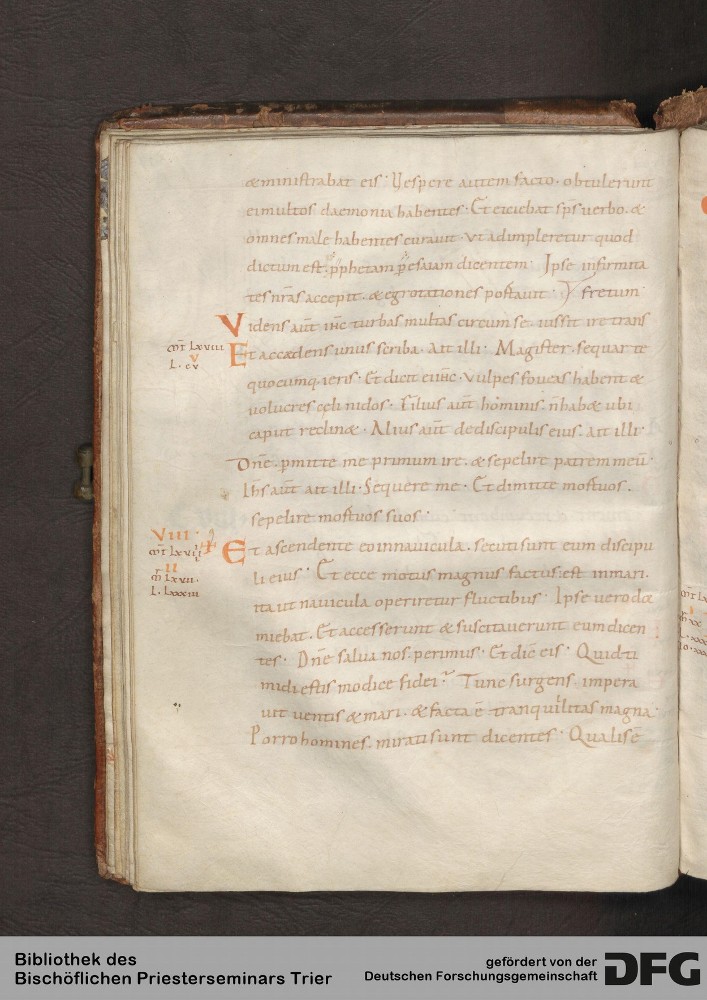 &ministrabat eis · Vespere autem facto · obtulerunt
ei multos daemonia habentes · Et eiciebat sp̄s verbo · &
omnes male habentes curauit · vt adimpleretur quod
dictum est · p̄phetam p̄ esaiam dicentem · Ipse infirmita
tes nr̄as accepit · & egrotationes portauit · fretum
Videns aut̄ ih̄c turbas multas circum se · iussit ire trans
mt̄ lxviii
Et accedens unus scriba · Ait illi · Magister · sequar te
v
l · cv
quocumq · ieris · Et dicit ei ih̄c · vulpes foueas habent &
uolucres cęli nidos · Filius aut̄ hominis · n̄ hab& ubi
caput reclin& · Alius aut̄ de discipulis eius · ait illi ·
Dn̄e · p̄mitte me primum ire · & sepelire patrem meū ·
Ih̄s aut̄ ait illi · Sequere me · Et dimitte mortuos ·
sepelire mortuos suos ·
VIII
Et ascendente eo in nauicula · secuti sunt eum discipu
mt̄ lxviiii
II
li eius · Et ecce motus magnus factus est in mari ·
m̄ lxvii ·
l · lxxxiii
ita ut nauicula operiretur fluctibus · Ipse uero do
miebat · Et accesserunt & suscitauerunt eum dicen
tes · Dn̄e salua nos · perimus · Et dic̄ eis · Quid ti
midi estis modice fidei · Tunc surgens · impera
uit uentis & mari · & facta ē tranquillitas magna ·
Porro homines · mirati sunt dicentes · Qualis ē
Bibliothek des
Bischöflichen Priesterseminars Trier
gefördert von der
Deutschen Forschungsgemeinschaft
DFG